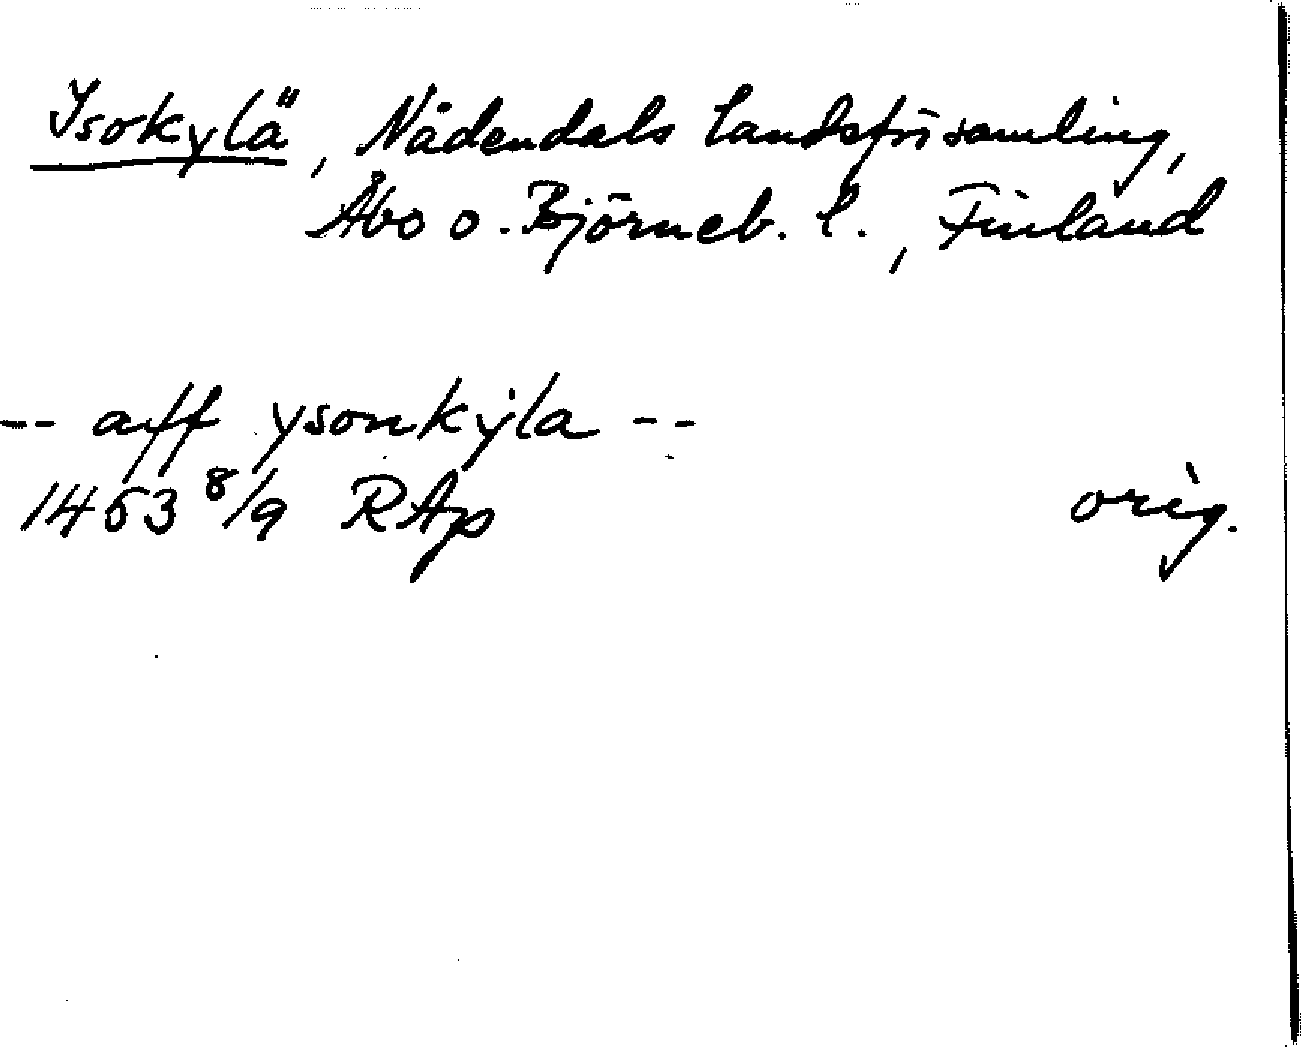 Isokylä, Nådendals landsförsamling,
Åbo o. Björneb. l., Finland
-- aff ysonkÿla --
1453 8/9 RAp orig.